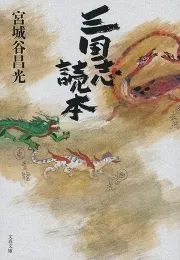 宮城谷昌光
三国志
読本
文春文庫